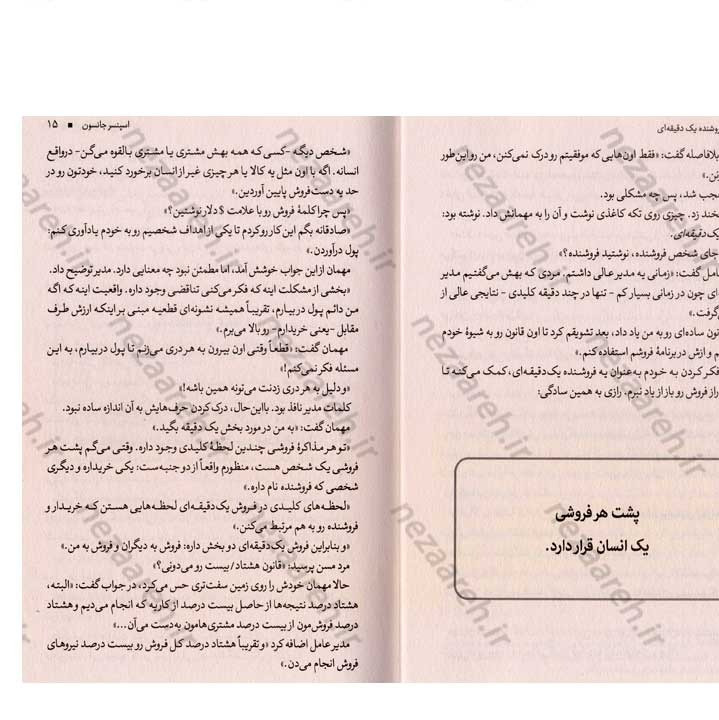 فروشنده یک دقیقه‌ای
بلافاصله گفت: «فقط اون‌هایی که موفقیتم رو درک نمی‌کنن، من رو این‌طور
عجب شد، پس چه مشکلی بود.
خند زد. چیزی روی تکه کاغذی نوشت و آن را به مهمانش داد. نوشته بود:
یک دقیقه‌ای.
جای شخص فروشنده، نوشتید فروشنده؟»
عامل گفت: «زمانی یه مدیر عالی داشتم. مردی که بهش می‌گفتیم مدیر
ای چون در زمانی بسیار کم – تنها در چند دقیقه کلیدی – نتایجی عالی از
گرفت.»
ون ساده‌ای رو به من یاد داد، بعد تشویقم کرد تا اون قانون رو به شیوهٔ خودم
م و ازش در برنامهٔ فروشم استفاده کنم.»
فکر کردن به خودم به‌عنوان یه فروشنده یک‌دقیقه‌ای، کمک می‌کنه تا
راز فروش رو باز از یاد نبرم. رازی به همین سادگی:
پشت هر فروشی
یک انسان قرار دارد.
اسپنسر جانسون ■ ۱۵
«شخص دیگه -کسی که همه بهش مشتری یا مشتری بالقوه می‌گن- درواقع
انسانه. اگه با اون مثل یه کالا یا هر چیزی غیر از انسان برخورد کنید، خودتون رو در
حد یه دست‌فروش پایین آوردین.»
«پس چرا کلمهٔ فروش رو با علامت $ دلار نوشتین؟»
«صادقانه بگم این کار رو کردم تا یکی از اهداف شخصیم رو به خودم یادآوری کنم:
پول درآوردن.»
مهمان از این جواب خوشش آمد، اما مطمئن نبود چه معنایی دارد. مدیر توضیح داد.
«بخشی از مشکلت اینه که فکر می‌کنی تناقضی وجود داره. واقعیت اینه که اگه
من دائم پول دربیارم، تقریباً همیشه نشونه‌ای قطعیه مبنی بر اینکه ارزش طرف
مقابل -یعنی خریدارم- رو بالا می‌برم.»
مهمان گفت: «قطعاً وقتی اون بیرون به هر دری می‌زنم تا پول دربیارم، به این
مسئله فکر نمی‌کنم!»
«و دلیل به هر دری زدنت می‌تونه همین باشه!»
کلمات مدیر نافذ بود. بااین‌حال، درک کردن حرف‌هایش به آن اندازه ساده نبود.
مهمان گفت: «به من در مورد بخش یک دقیقه بگید.»
«تو هر مذاکرهٔ فروشی چندین لحظهٔ کلیدی وجود داره. وقتی می‌گم پشت هر
فروشی یک شخص هست، منظورم واقعاً از دو جنبه‌ست: یکی خریداره و دیگری
شخصی که فروشنده نام داره.»
«لحظه‌های کلیدی در فروش یک‌دقیقه‌ای لحظه‌هایی هستن که خریدار و
فروشنده رو به هم مرتبط می‌کنن.»
«و بنابراین فروش یک‌دقیقه‌ای دو بخش داره: فروش به دیگران و فروش به من.»
مرد مسن پرسید: «قانون هشتاد/بیست رو می‌دونی؟»
حالا مهمان خودش را روی زمین سفت‌تری حس می‌کرد، در جواب گفت: «البته،
هشتاد درصد نتیجه‌ها از حاصل بیست درصد از کاریه که انجام می‌دیم و هشتاد
درصد فروش‌مون از بیست درصد مشتری‌هامون به‌دست می‌آن...»
مدیرعامل اضافه کرد «و تقریباً هشتاد درصد کل فروش رو بیست درصد نیروهای
فروش انجام می‌دن.»
nezaareh.ir